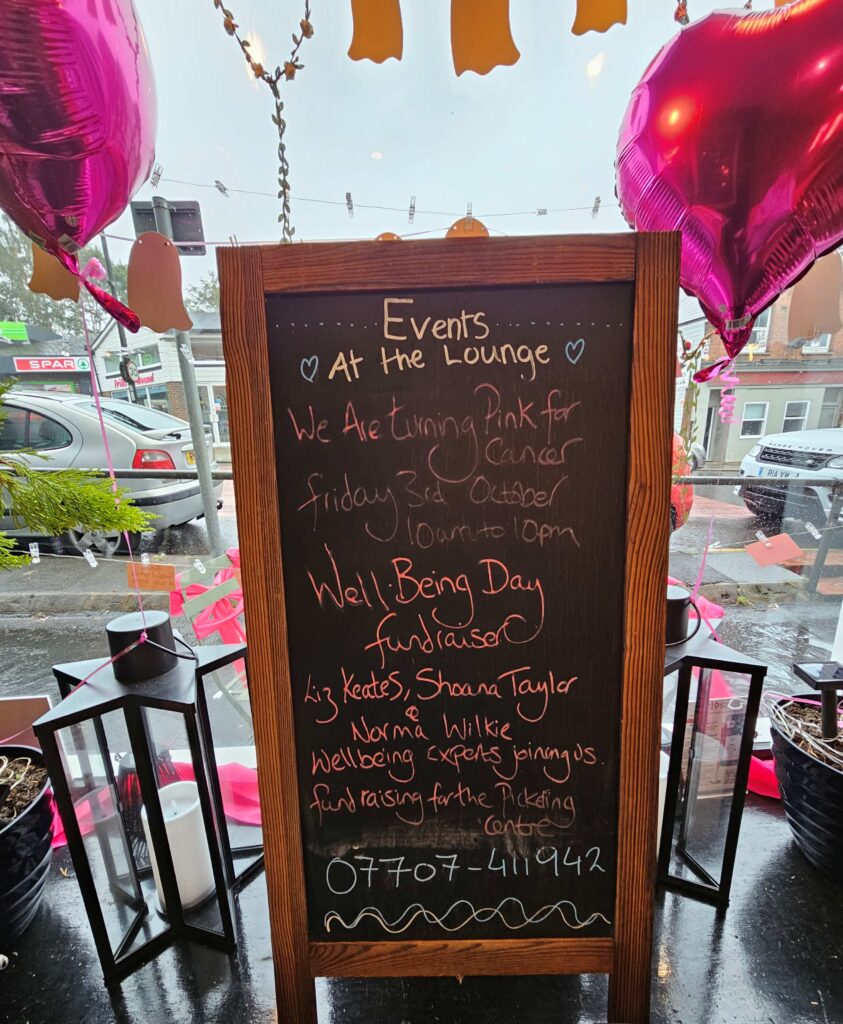 Events
At the Lounge
We Are turning Pink for
Cancer
friday 3rd October
10am to 10pm
Well.Being Day
fundraiser
Liz Keates, Shoana Taylor
&
Norma Wilkie
Wellbeing Experts joining us.
fund raising for the Pickering
Centre
07707-411942
SPAR
RANGE ROVER